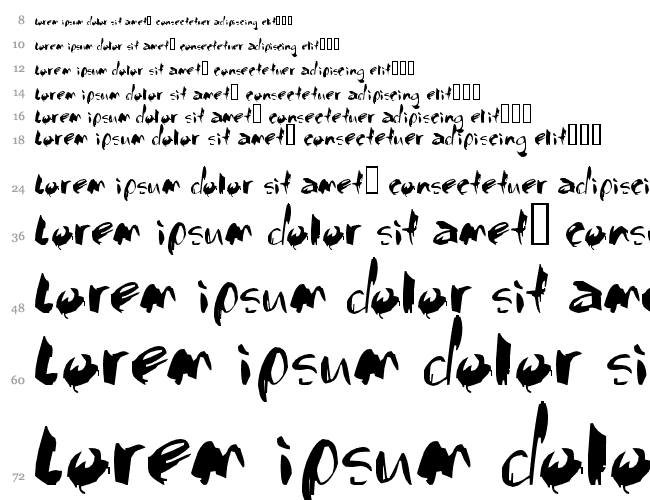 8 Lorem ipsum dolor sit amet▯ consectetuer adipiscing elit▯▯▯
10 Lorem ipsum dolor sit amet▯ consectetuer adipiscing elit▯▯▯
12 Lorem ipsum dolor sit amet▯ consectetuer adipiscing elit▯▯▯
14 Lorem ipsum dolor sit amet▯ consectetuer adipiscing elit▯▯▯
16 Lorem ipsum dolor sit amet▯ consectetuer adipiscing elit▯▯▯
18 Lorem ipsum dolor sit amet▯ consectetuer adipiscing elit▯▯▯
24 Lorem ipsum dolor sit amet▯ consectetuer adipisci
36 Lorem ipsum dolor sit amet▯ consu
48 Lorem ipsum dolor sit ame
60 Lorem ipsum dolor si
72 Lorem ipsum dolo